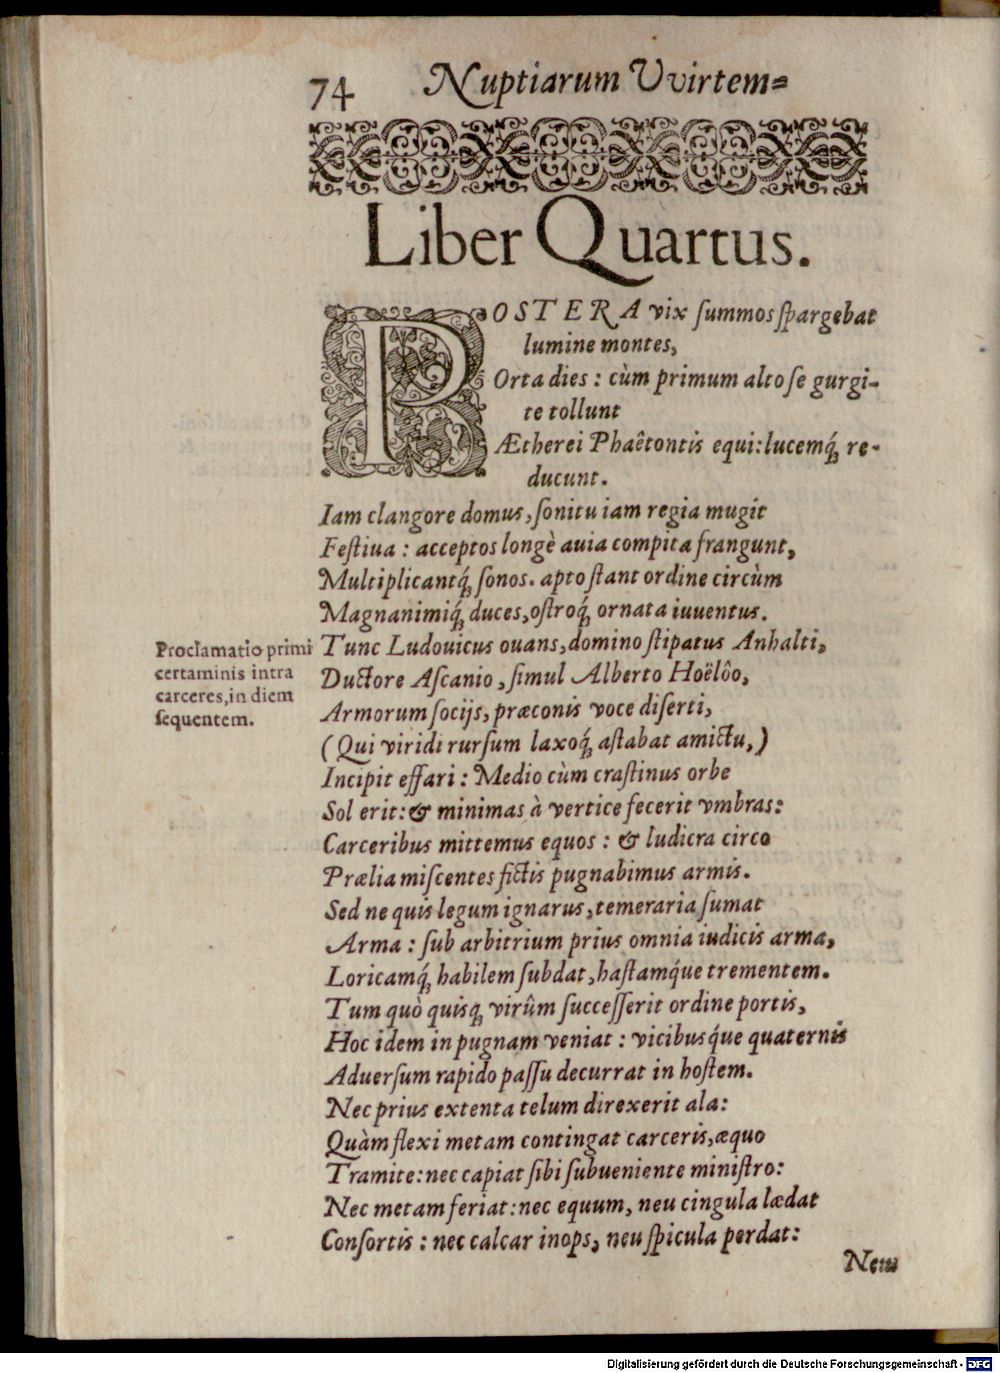 74 Nuptiarum Vvirtem=
Liber Quartus.
POSTERA vix ſummos ſpargebat
lumine montes,
Orta dies : cùm primum alto ſe gurgi-
te tollunt
Ætherei Phaëtontis equi: lucemq́ꝫ re-
ducunt.
Iam clangore domus, ſonitu iam regia mugit
Feſtiua : acceptos longè auia compita frangunt,
Multiplicantq́ꝫ ſonos. apto ſtant ordine circùm
Magnanimiq́ꝫ duces, oſtroq́ꝫ ornata iuuentus.
Proclamatio primi
certaminis intra
carceres, in diem
ſequentem.
Tunc Ludouicus ouans, domino ſtipatus Anhalti,
Ductore Aſcanio, ſimul Alberto Hoëlôo,
Armorum ſocijs, præconis voce diſerti,
(Qui viridi rurſum laxoq́ꝫ aſtabat amictu,)
Incipit effari : Medio cùm craſtinus orbe
Sol erit: & minimas à vertice fecerit vmbras:
Carceribus mittemus equos : & ludicra circo
Prælia miſcentes fictis pugnabimus armis.
Sed ne quis legum ignarus, temeraria ſumat
Arma : ſub arbitrium prius omnia iudicis arma,
Loricamq́ꝫ habilem ſubdat, haſtamq́ue trementem.
Tum quò quisqꝫ virûm ſucceſſerit ordine portis,
Hoc idem in pugnam veniat : vicibusq́ue quaternis
Aduerſum rapido paſſu decurrat in hoſtem.
Nec prius extenta telum direxerit ala:
Quàm flexi metam contingat carceris, æquo
Tramite: nec capiat ſibi ſubueniente miniſtro:
Nec metam feriat: nec equum, neu cingula lædat
Conſortis : nec calcar inops, neu ſpicula perdat:
Neu
Digitalisierung gefördert durch die Deutsche Forschungsgemeinschaft - DFG